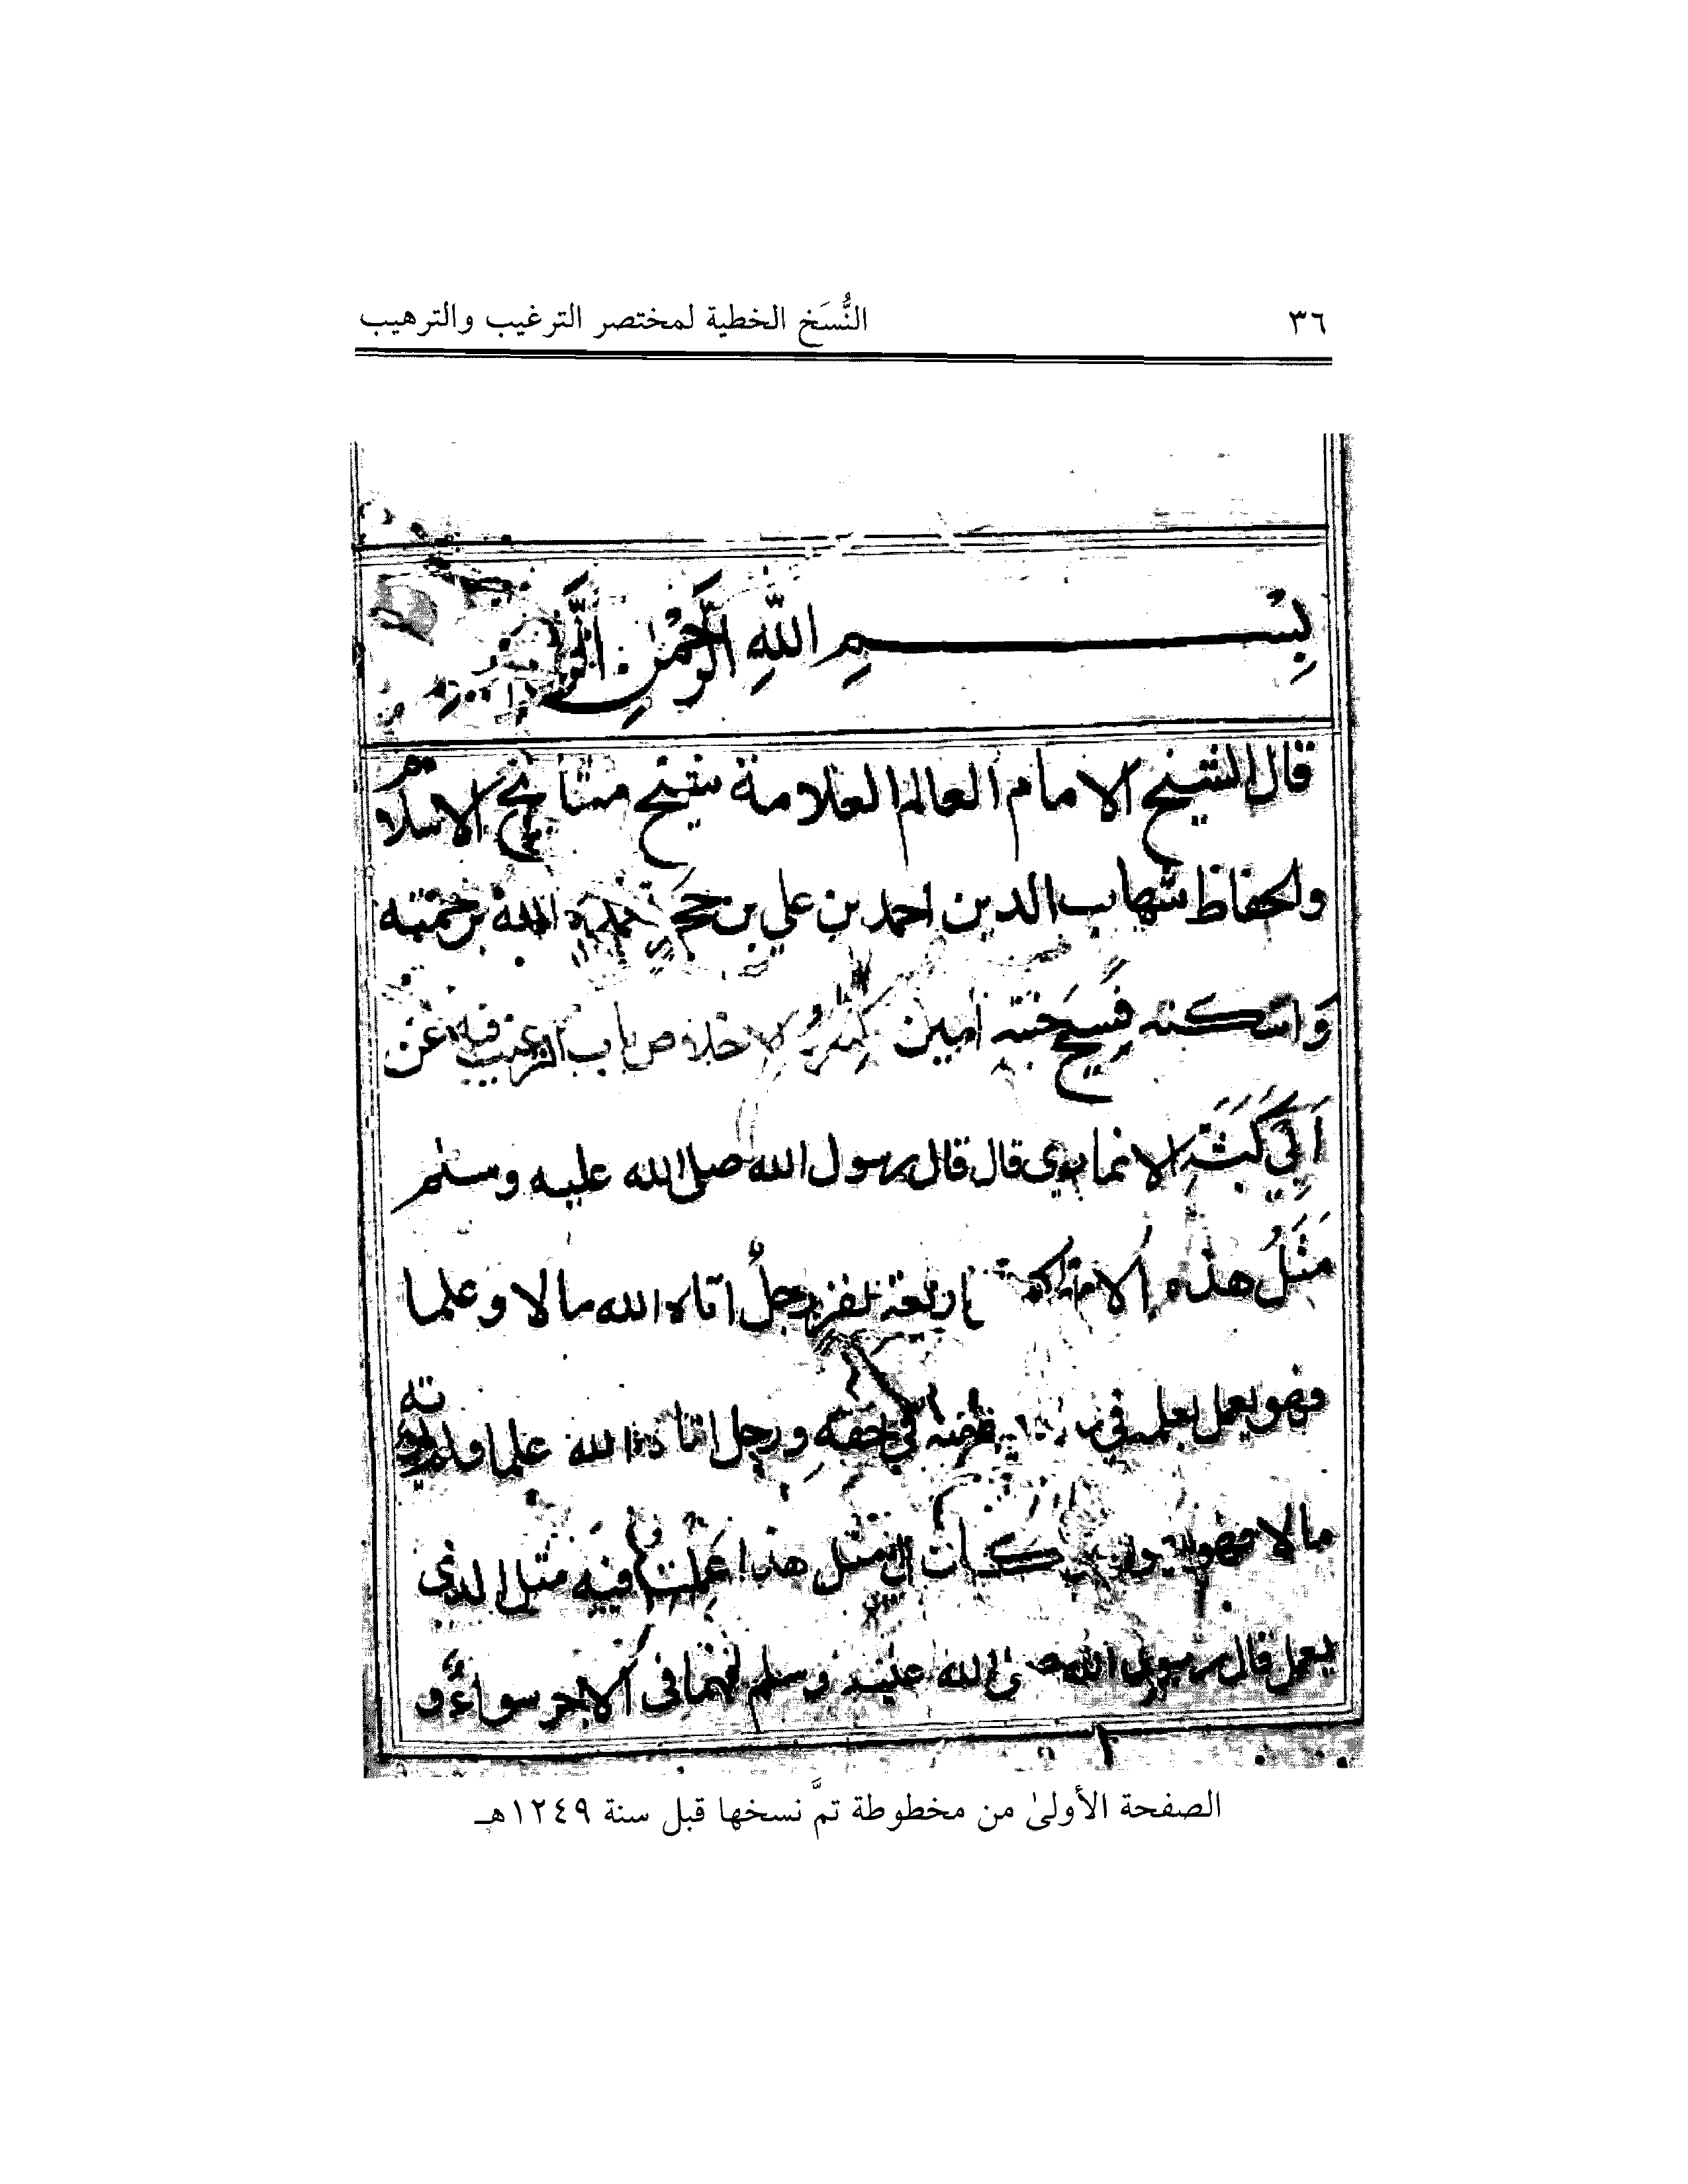 ٣٦
النُّسَخ الخطية لمختصر الترغيب والترهيب
بِسْمِ اللّٰهِ الرَّحْمٰنِ
قال الشيخ الامام العالم العلامة شيخ مشايخ الاسلام
والحفاظ شهاب الدين احمد بن علي بن حجر تغمده الله برحمته
وَاسكنه فَسِيح جنته آمين كتاب الاخلاص باب الترغيب فيه عن
اَبِي كَبَشَة الانماري قال قال رسول الله صلى الله عليه وسلم
مَثَلُ هذه الامة كمثل اربعة نفر رجلٌ آتاه الله مالا وعلما
فهو يعمل بعلمه في ماله ينفقه في حقِّهِ ورجل اتاه الله علما ولم يؤته
مالا فهو يقول لو كان لي مثل هذا عَمِلت فيه مثل الذي
يعمل قال رسول الله صلى الله عليه وسلم فهما في الاجر سواءٌ و
الصفحة الأولىٰ من مخطوطة تمَّ نسخها قبل سنة ١٢٤٩هـ